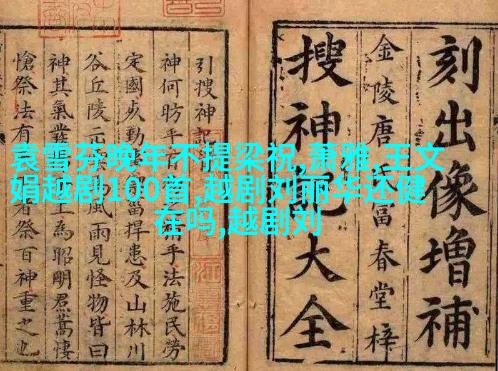 袁雪芬晚年不提梁祝,萧雅,王文
娟越剧100首,越剧刘丽华还健
在吗,越剧刘
刻出像增補
金陵唐富春堂梓
搜神記大全
引搜神記
神何昉乎手法施民勞
定國勤當捍患及山林川
谷丘陵風雨見怪物皆曰
神其氣為昭明焄蒿悽
愴祭法有者祭百神重之也